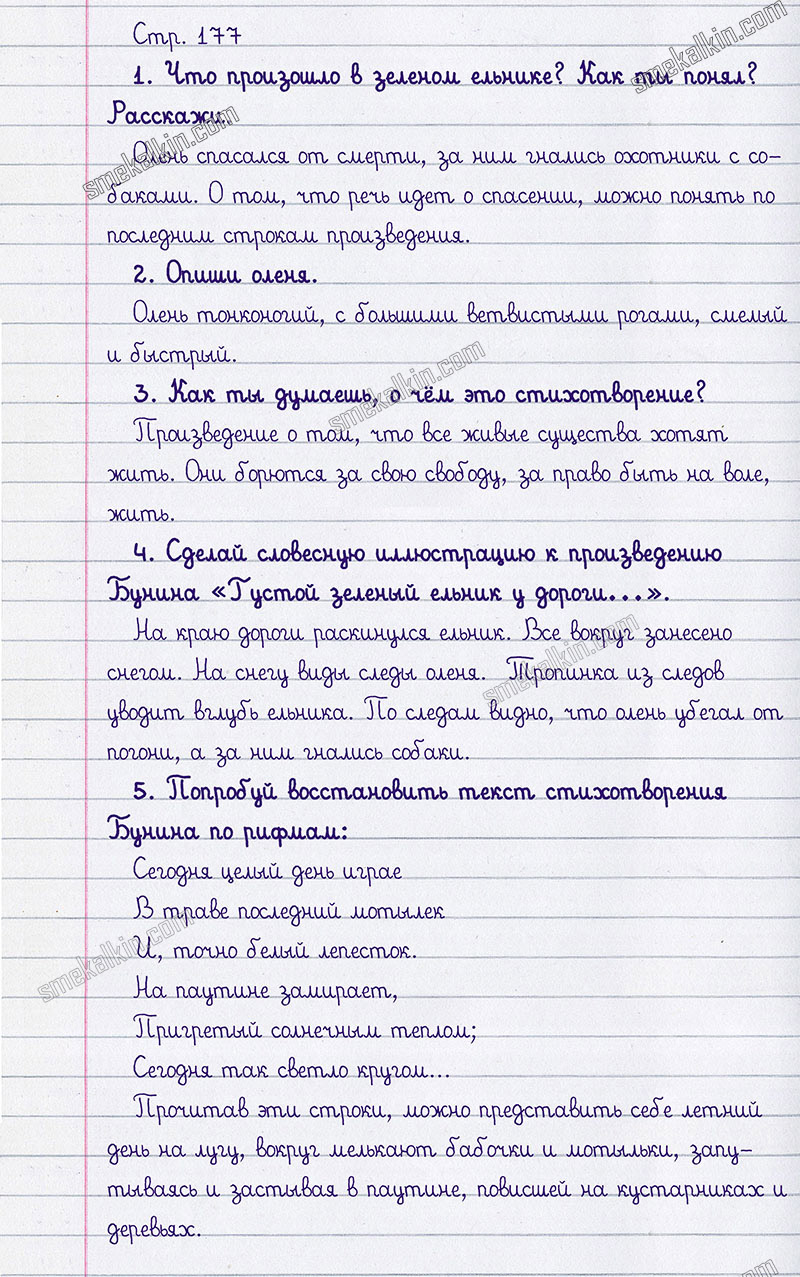 Стр. 177
1. Что произошло в зеленом ельнике? Как ты понял?
Расскажи.
Олень спасался от смерти, за ним гнались охотники с со-
баками. О том, что речь идет о спасении, можно понять по
последним строкам произведения.
2. Опиши оленя.
Олень тонконогий, с большими ветвистыми рогами, смелый
и быстрый.
3. Как ты думаешь, о чём это стихотворение?
Произведение о том, что все живые существа хотят
жить. Они борются за свою свободу, за право быть на воле,
жить.
4. Сделай словесную иллюстрацию к произведению
Бунина «Густой зеленый ельник у дороги...».
На краю дороги раскинулся ельник. Все вокруг занесено
снегом. На снегу виды следы оленя. Тропинка из следов
уводит вглубь ельника. По следам видно, что олень убегал от
погони, а за ним гнались собаки.
5. Попробуй восстановить текст стихотворения
Бунина по рифмам:
Сегодня целый день играе
В траве последний мотылек
И, точно белый лепесток.
На паутине замирает,
Пригретый солнечным теплом;
Сегодня так светло кругом...
Прочитав эти строки, можно представить себе летний
день на лугу, вокруг мелькают бабочки и мотыльки, запу-
тываясь и застывая в паутине, повисшей на кустарниках и
деревьях.
smekalkin.com
smekalkin.com
smekalkin.com
smekalkin.com
smekalkin.com